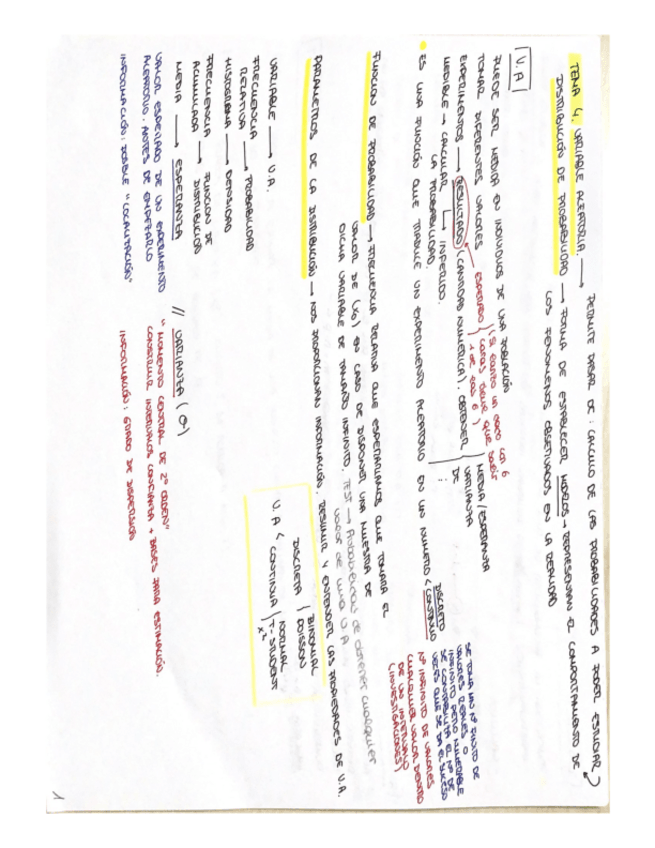 TEMA 4. VARIABLE ALEATORIA → PERMITE PASAR DE: CALCULO DE LAS PROBABILIDADES A PODER ESTUDIAR
DISTRIBUCIÓN DE PROBABILIDAD → FORMA DE ESTABLECER MODELOS → REPRESENTAN EL COMPORTAMIENTO DE
LOS FENOMENOS OBSERVADOS EN LA REALIDAD
V.A
PUEDE SER MEDIDA EN INDIVIDUOS DE UNA POBLACIÓN
TOMAR DIFERENTES VALORES
ESPERADO (SI TIRO UN DADO CON 6
CARAS TIENE QUE SALIR
1 DE LAS 6)
EXPERIMENTOS → RESULTADO (CANTIDAD NUMERICA). OBTENER
MEDIA/ESPERANZA
VARIANZA
DE
MEDIBLE → CALCULAR → INFERIDO.
LA PROBABILIDAD.
ES UNA FUNCIÓN QUE TRADUCE UN EXPERIMENTO ALEATORIO EN UN NUMERO < DISCRETO
CONTINUO
SE TOMA UN Nº FINITO DE
VALORES REALES O
INFINITO PERO NUMERABLE
SE CONTABILIZA EL Nº DE
VECES QUE SE DA EL SUCESO
Nº INFINITO DE VALORES
CUALQUIER VALOR DENTRO
DE UN INTERVALO
(INVESTIGACIONES)
FUNCION DE PROBABILIDAD → FRECUENCIA RELATIVA QUE ESPERARIAMOS QUE TOMARA EL
VALOR DE (X0) EN CASO DE DISPONER UNA MUESTRA DE
DICHA VARIABLE DE TAMAÑO INFINITO. TEST → PROBABILIDAD DE OBTENER CUALQUIER
VALOR DE UNA V.A
PARAMETROS DE LA DISTRIBUCIÓN → NOS PROPORCIONAN INFORMACIÓN. RESUMIR Y ENTENDER LAS PROPIEDADES DE V.A.
VARIABLE → V.A.
FRECUENCIA
RELATIVA → PROBABILIDAD
HISTOGRAMA → DENSIDAD
FRECUENCIA
ACUMULADA → FUNCION DE
DISTRIBUCIÓN
MEDIA → ESPERANZA
VALOR ESPERADO DE UN EXPERIMENTO
ALEATORIO. ANTES DE EMPEZARLO
INFORMACIÓN: POSIBLE "LOCALIZACIÓN"
// VARIANZA (σ)
"MOMENTO CENTRAL DE 2º ORDEN"
CONSTRUIR INTERVALOS CONFIANZA + BASES PARA ESTIMACIÓN.
INFORMACIÓN: GRADO DE DISPERSIÓN
V.A <
DISCRETA { BINOMIAL
POISSON
CONTINUA { NORMAL
T-STUDENT
X²
1